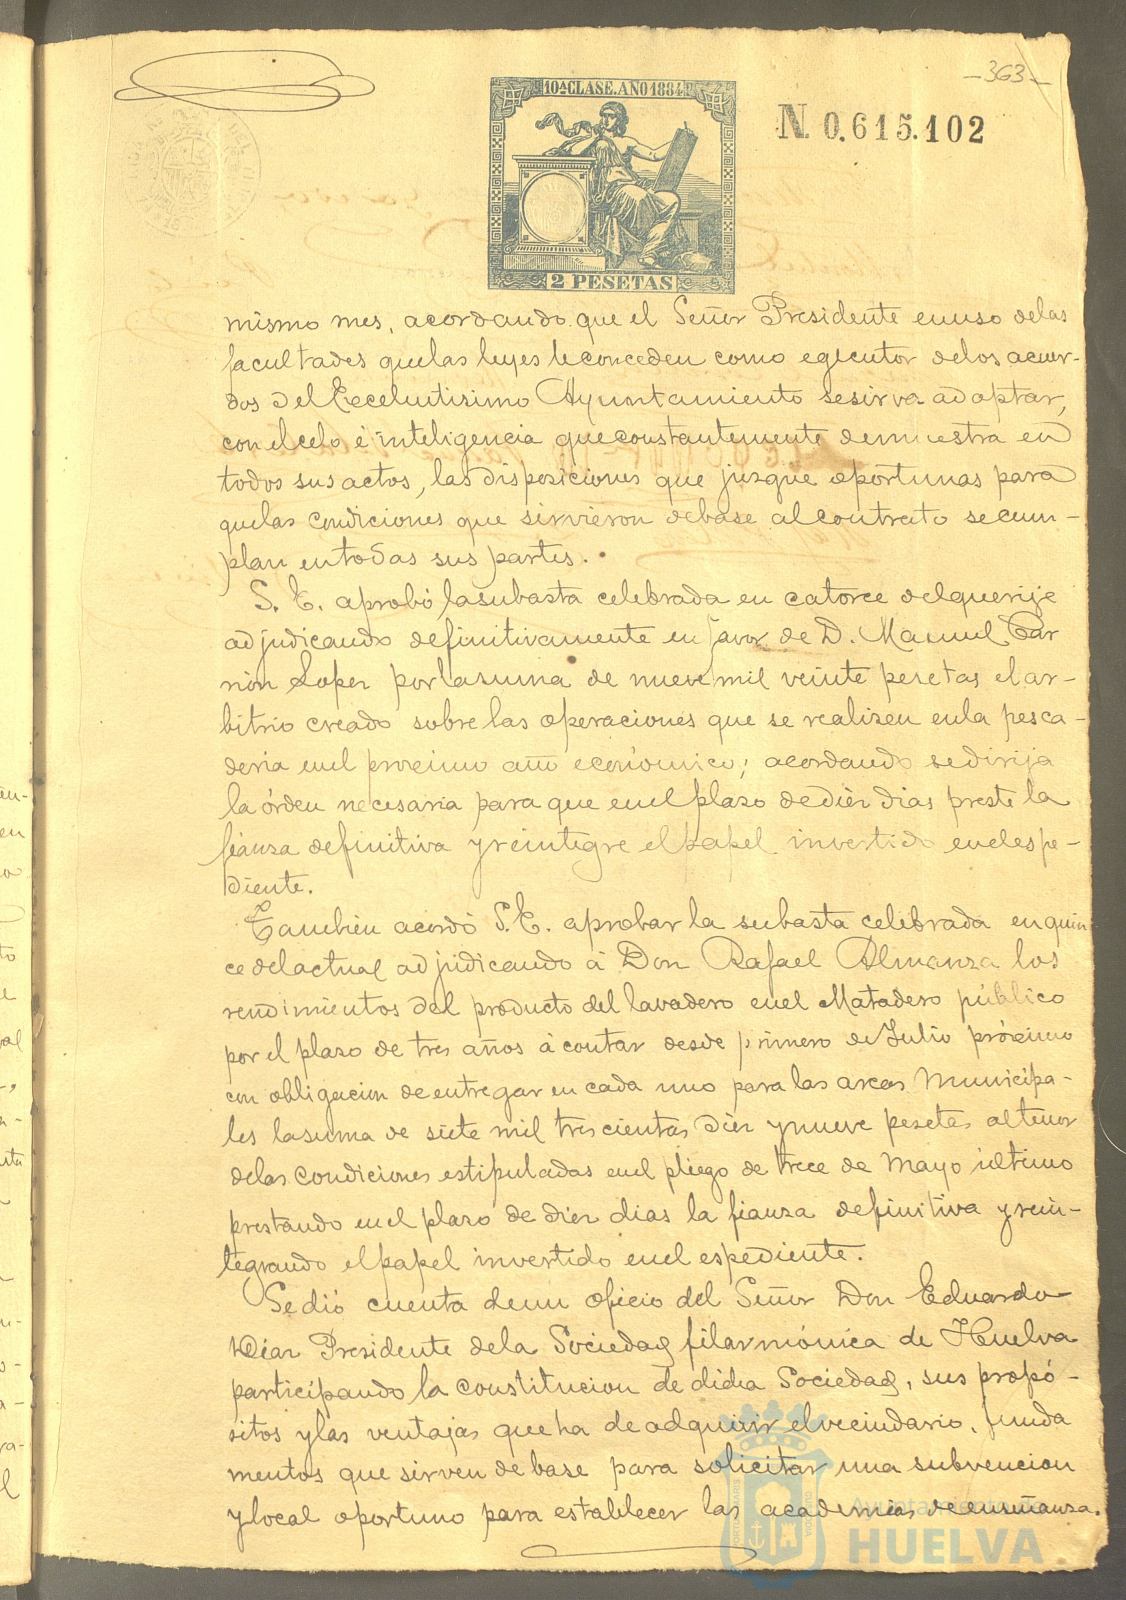 -363-
10ª CLASE. AÑO 1884
N. 0.615.102
2 PESETAS
mismo mes, acordando que el Señor Presidente en uso de las
facultades que las leyes le conceden como egecutor de los acuer-
dos del Eccelentisimo Ayuntamiento se sirva adoptar,
con el celo é inteligencia que constantemente demuestra en
todos sus actos, las disposiciones que juzgue oportunas para
que las condiciones que sirvieron de base al contrato se cum-
plan en todas sus partes.
S. E. aprobó la subasta celebrada en catorce del que rije
adjudicando definitivamente en favor de D. Manuel Car
rión Loper por la suma de nueve mil veinte pesetas el ar-
bitrio creado sobre las operaciones que se realizen en la pesca-
deria en el procsimo año económico; acordando se dirija
la órden necesaria para que en el plazo de diér dias preste la
fianza definitiva y reintegre el papel invertido en el espe-
diente.
Tambien acordó S. E. aprobar la subasta celebrada en quin
ce del actual adjudicando á Don Rafael Almanza los
rendimientos del producto del lavadero en el Matadero público
por el plazo de tres años á contar desde primero de Julio prócsimo
con obligacion de entregar en cada uno para las arcas Municipa-
les la suma de siete mil trescientas diér y nueve pesetas al tenor
de las condiciones estipuladas en el pliego de trece de Mayo último
prestando en el plazo de diér dias la fianza definitiva y rein-
tegrando el papel invertido en el espediente.
Se dió cuenta de un oficio del Señor Don Eduardo
Diar Presidente de la Sociedad filarmónica de Huelva
participando la constitucion de dicha Sociedad, sus propó-
sitos y las ventajas que ha de adquirir el vecindario, funda
mentos que sirven de base para solicitar una subvencion
y local oportuno para establecer las academias de enseñanza.
Ayuntamiento de
HUELVA